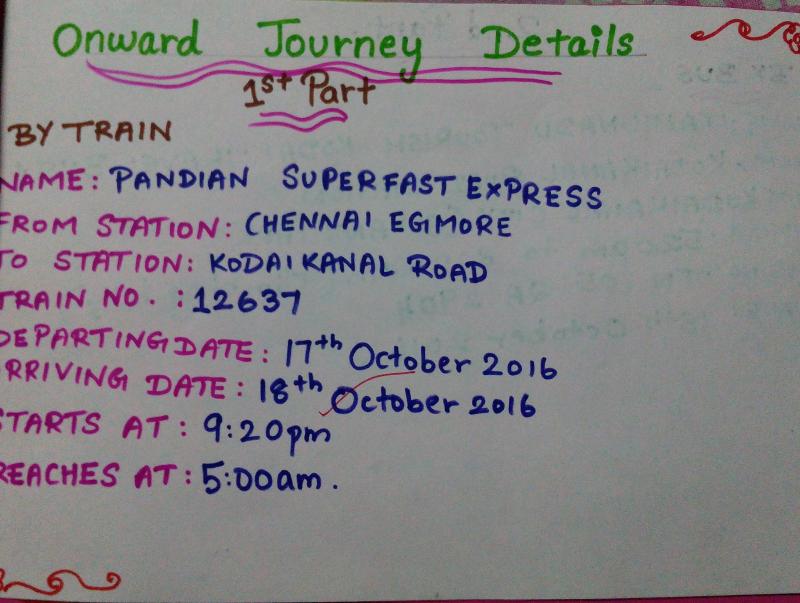 Onward Journey Details
1st Part
BY TRAIN
NAME: PANDIAN SUPERFAST EXPRESS
FROM STATION: CHENNAI EGMORE
TO STATION: KODAIKANAL ROAD
TRAIN NO. : 12637
DEPARTING DATE: 17th October 2016
ARRIVING DATE: 18th October 2016
STARTS AT: 9:20pm
REACHES AT: 5:00am.